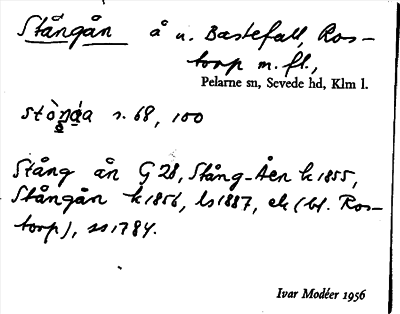 Stångån å u. Bastefall, Ros-
torp m. fl.,
Pelarne sn, Sevede hd, Klm l.
s. 68, 100
Stång ån G 28, Stång-Åen k 1855,
Stångån k 1856, ls 1887, ek (bl. Ros-
torp), ss 1784.
Ivar Modéer 1956